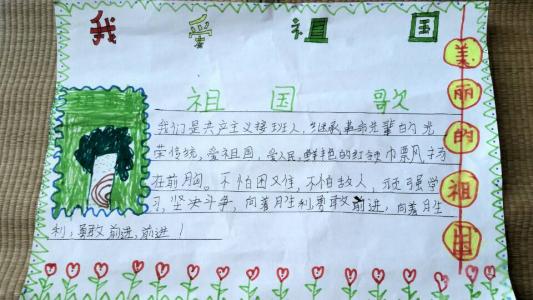 我爱祖国
祖国歌
我们是共产主义接班人,继承革命先辈的光
荣传统,爱祖国,爱人民,鲜艳的红领巾飘
在前胸。不怕困难,不怕敌人,顽强学
习,坚决斗争,向着胜利勇敢前进,向着胜
利,勇敢前进,前进!
美丽的祖国